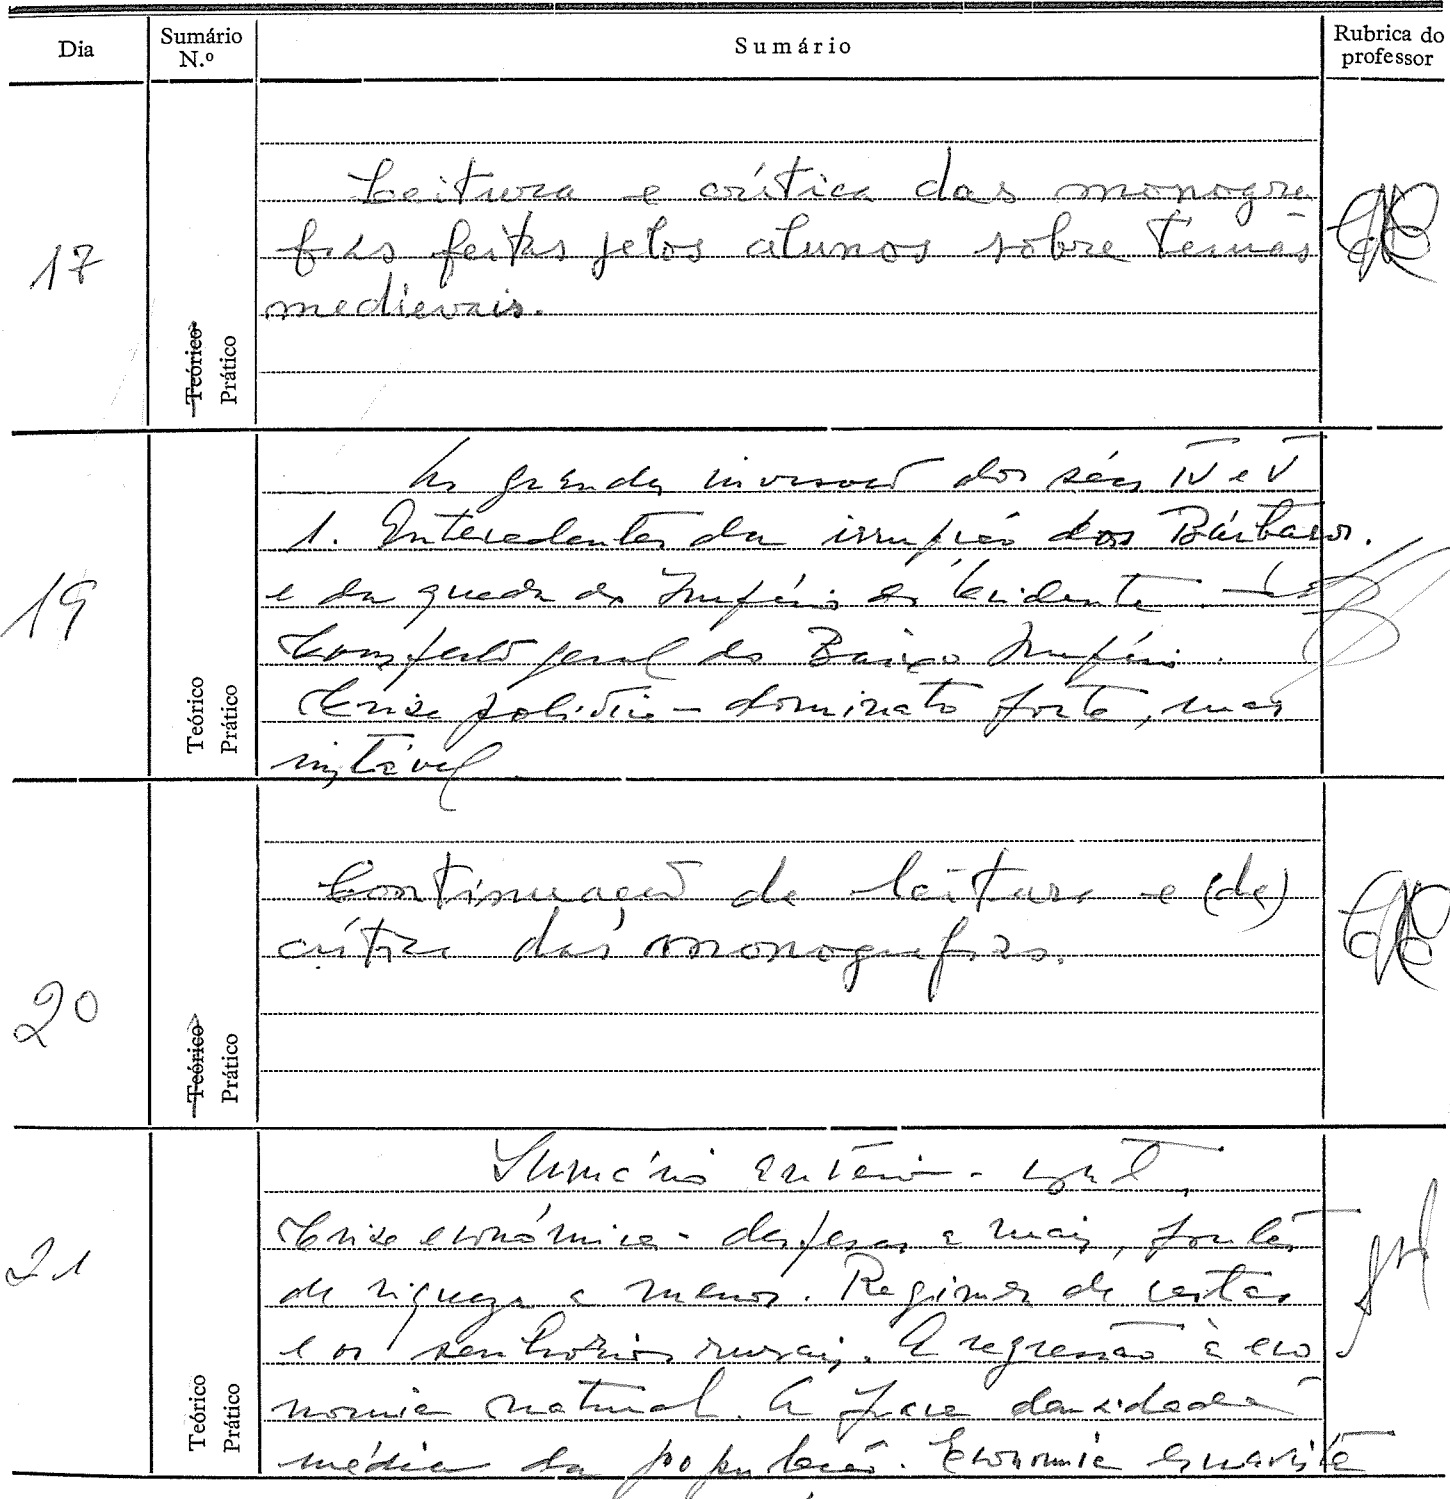 Dia
Sumário N.º
Sumário
Rubrica do professor
17
Teórico
Prático
Leitura e crítica das monogra
fias feitas pelos alunos sobre temas
medievais.
19
Teórico
Prático
As grandes invasões dos sécs IV e V
1. Antecedentes da irrupção dos Bárbaros.
e da queda do Império do Ocidente
geral do Baixo Império.
Crise política - dominato forte, mas
instável
20
Teórico
Prático
Continuação da leitura e (da)
crítica das monografias.
21
Teórico
Prático
Sumário
Crise económica - despesas a mais, fontes
de riqueza a menos. Regimen de castas
e os senhorios rurais. A regressão à eco
nomia natural. A fraca densidade
média da população. Economia